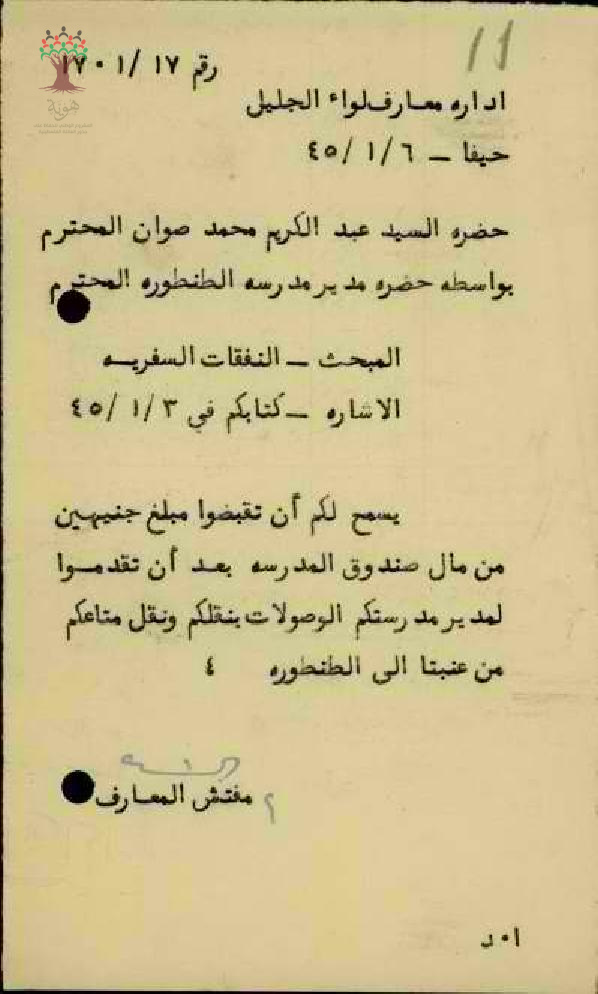 11
رقم ١٧ /١٧٠١
اداره معارف لواء الجليل
حيفا – ٦/ ١ /٤٥
حضره السيد عبد الكريم محمد صوان المحترم
بواسطه حضره مدير مدرسه الطنطوره المحترم
المبحث – النفقات السفريه
الاشاره – كتابكم في ٣ /١ /٤٥
يسمح لكم أن تقبضوا مبلغ جنيهين
من مال صندوق المدرسه بعد أن تقدموا
لمدير مدرستكم الوصولات بنقلكم ونقل متاعكم
من عنبتا الى الطنطوره ٤
مفتش المعارف
٠١ د
هوية